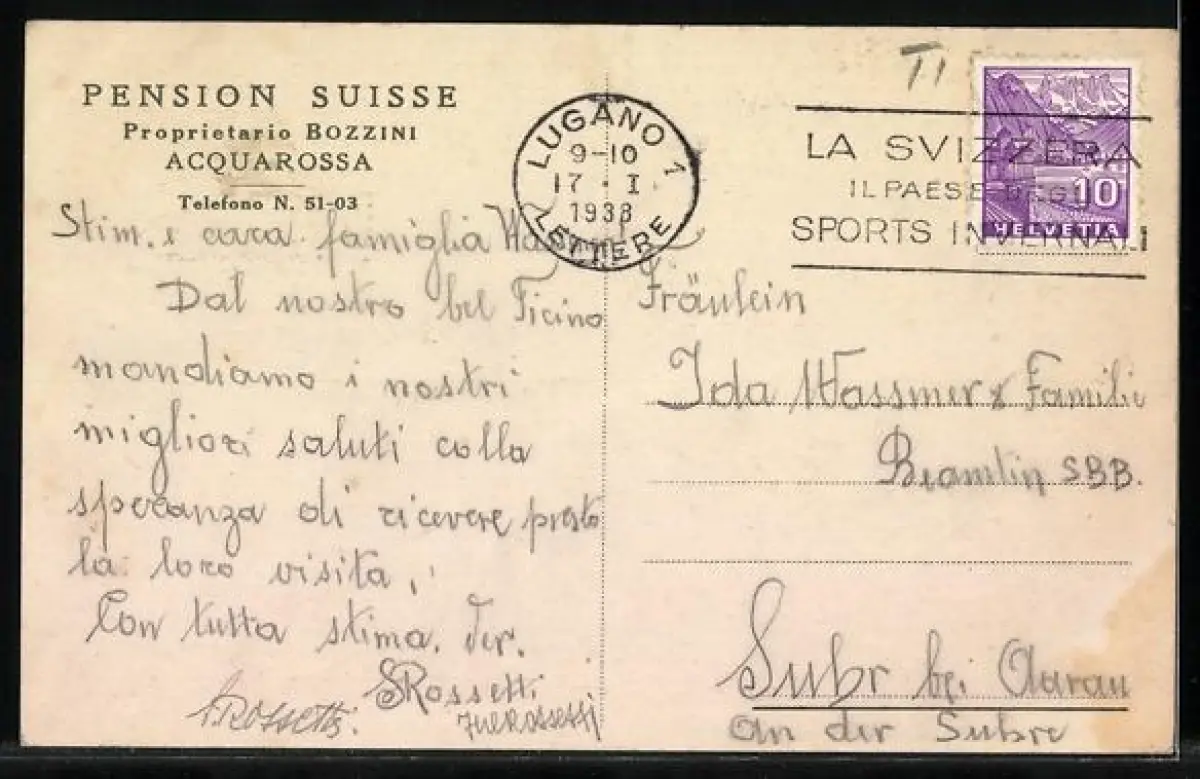 PENSION SUISSE
Proprietario BOZZINI
ACQUAROSSA
Telefono N. 51-03
Stim. e cara famiglia
Dal nostro bel Ticino
mandiamo i nostri
migliori saluti colla
speranza di ricevere presto
la loro visita,
Con tutta stima.
Rossetti
Rossetti
TI
LUGANO 1
9-10
17 . I
1938
LETTERE
LA SVIZZERA
IL PAESE DEGLI
SPORTS INVERNALI
10
HELVETIA
Fräulein
Ida Wassmer & Familie
Beamtin SBB.
Suhr bei Aarau
an der Suhre